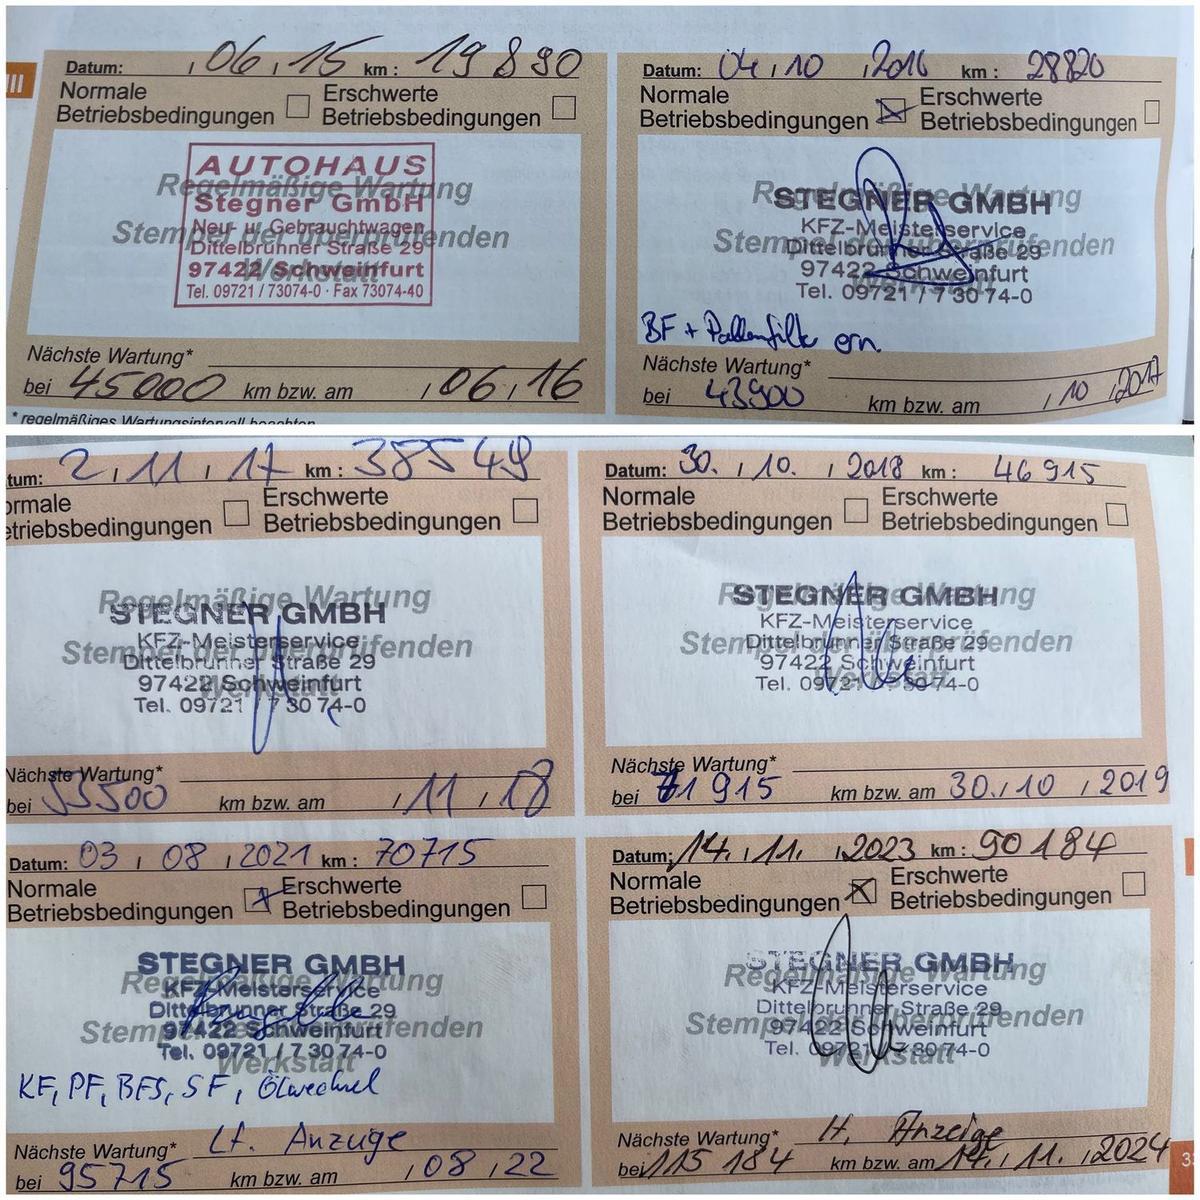 III
Datum: , 06 , 15 km : 19890
Normale Betriebsbedingungen Erschwerte Betriebsbedingungen
Regelmäßige Wartung
Stempel der überprüfenden
Werkstatt
AUTOHAUS
Stegner GmbH
Neu- u. Gebrauchtwagen
Dittelbrunner Straße 29
97422 Schweinfurt
Tel. 09721 / 73074-0 · Fax 73074-40
Nächste Wartung*
bei 45000 km bzw. am , 06 , 16
* regelmäßiges Wartungsintervall beachten
Datum: 04 , 10 , 2016 km : 28820
Normale Betriebsbedingungen Erschwerte Betriebsbedingungen
Regelmäßige Wartung
Stempel der überprüfenden
Werkstatt
STEGNER GMBH
KFZ-Meisterservice
Dittelbrunner Straße 29
97422 Schweinfurt
Tel. 09721 / 7 30 74-0
BF + Pollenfilt ern.
Nächste Wartung*
bei 43900 km bzw. am , 10 , 2017
tum: 2 , 11 , 17 km : 38549
ormale
etriebsbedingungen Erschwerte Betriebsbedingungen
Regelmäßige Wartung
Stempel der überprüfenden
Werkstatt
STEGNER GMBH
KFZ-Meisterservice
Dittelbrunner Straße 29
97422 Schweinfurt
Tel. 09721 / 7 30 74-0
Nächste Wartung*
bei 53500 km bzw. am , 11 , 18
Datum: 30. , 10. , 2018 km : 46915
Normale Betriebsbedingungen Erschwerte Betriebsbedingungen
Regelmäßige Wartung
Stempel der überprüfenden
Werkstatt
STEGNER GMBH
KFZ-Meisterservice
Dittelbrunner Straße 29
97422 Schweinfurt
Tel. 09721 / 7 30 74-0
Nächste Wartung*
bei 71915 km bzw. am 30. , 10 , 2019
Datum: 03 , 08 , 2021 km : 70715
Normale Betriebsbedingungen Erschwerte Betriebsbedingungen
Regelmäßige Wartung
Stempel der überprüfenden
Werkstatt
STEGNER GMBH
KFZ-Meisterservice
Dittelbrunner Straße 29
97422 Schweinfurt
Tel. 09721 / 7 30 74-0
KF, PF, BFS, SF, Ölwechsel
Nächste Wartung* Lt. Anzeige
bei 95715 km bzw. am , 08 , 22
Datum: 14. , 11. , 2023 km : 90184
Normale Betriebsbedingungen Erschwerte Betriebsbedingungen
Regelmäßige Wartung
Stempel der überprüfenden
Werkstatt
STEGNER GMBH
KFZ-Meisterservice
Dittelbrunner Straße 29
97422 Schweinfurt
Tel. 09721 / 7 30 74-0
Nächste Wartung* lt. Anzeige
bei 115 184 km bzw. am 14. , 11. , 2024